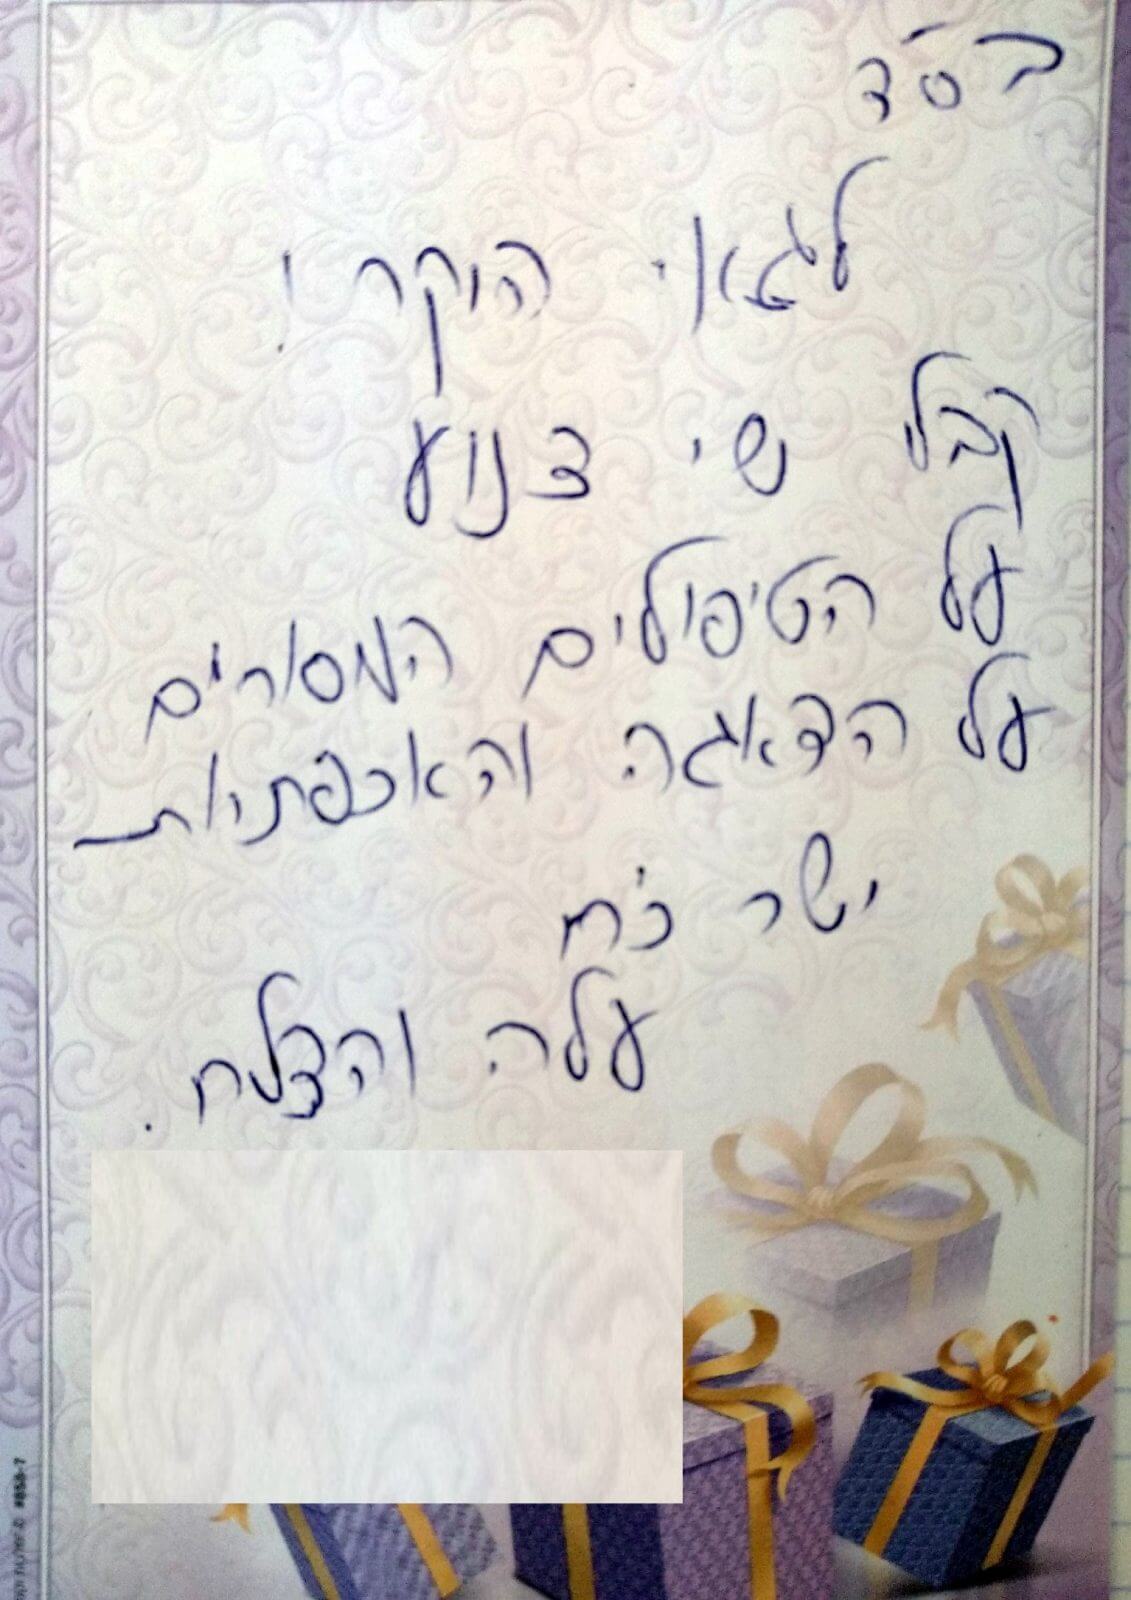 בס"ד
לגאי היקר !
קבל נשי צנוע
על הטיפולים המסורים
על הדאגה והאכפתיות
ישר כ"ח
עלה והצלח.
#858-7